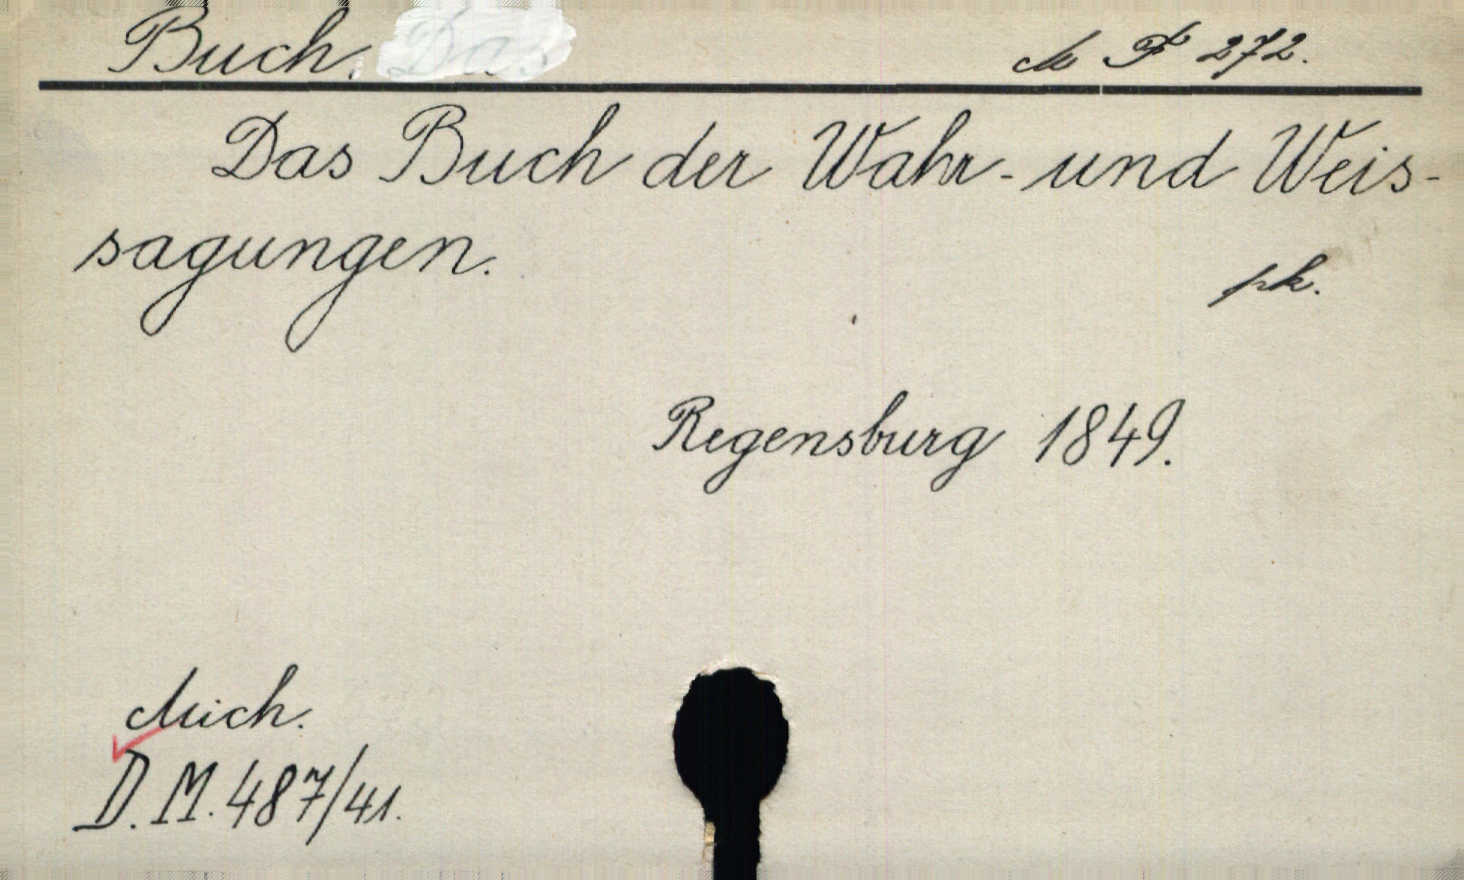 Buch, Das M F 272.
Das Buch der Wahr- und Weis-
sagungen.
pk.
Regensburg 1849.
Mich.
D.M. 487/41.